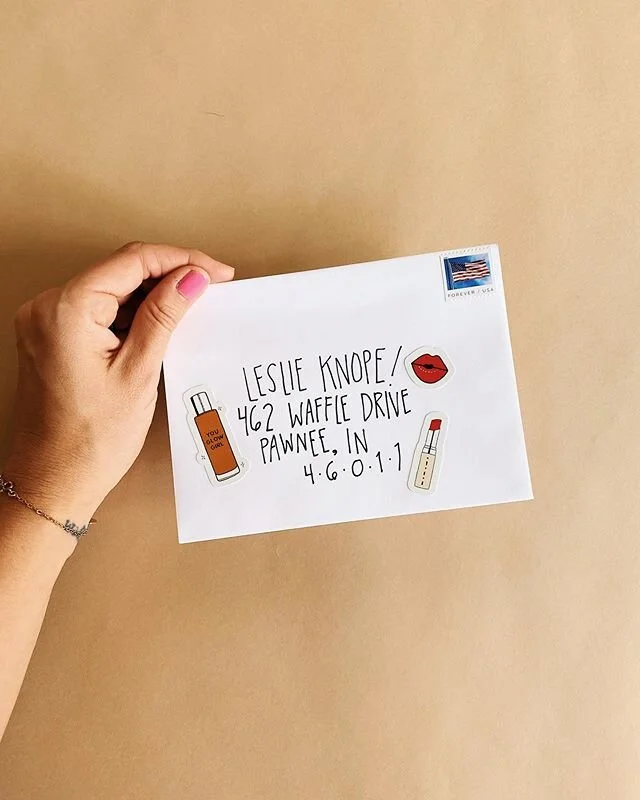 FOREVER / USA
LESLIE KNOPE!
462 WAFFLE DRIVE
PAWNEE, IN
4·6·0·1·1
YOU
GLOW
GIRL